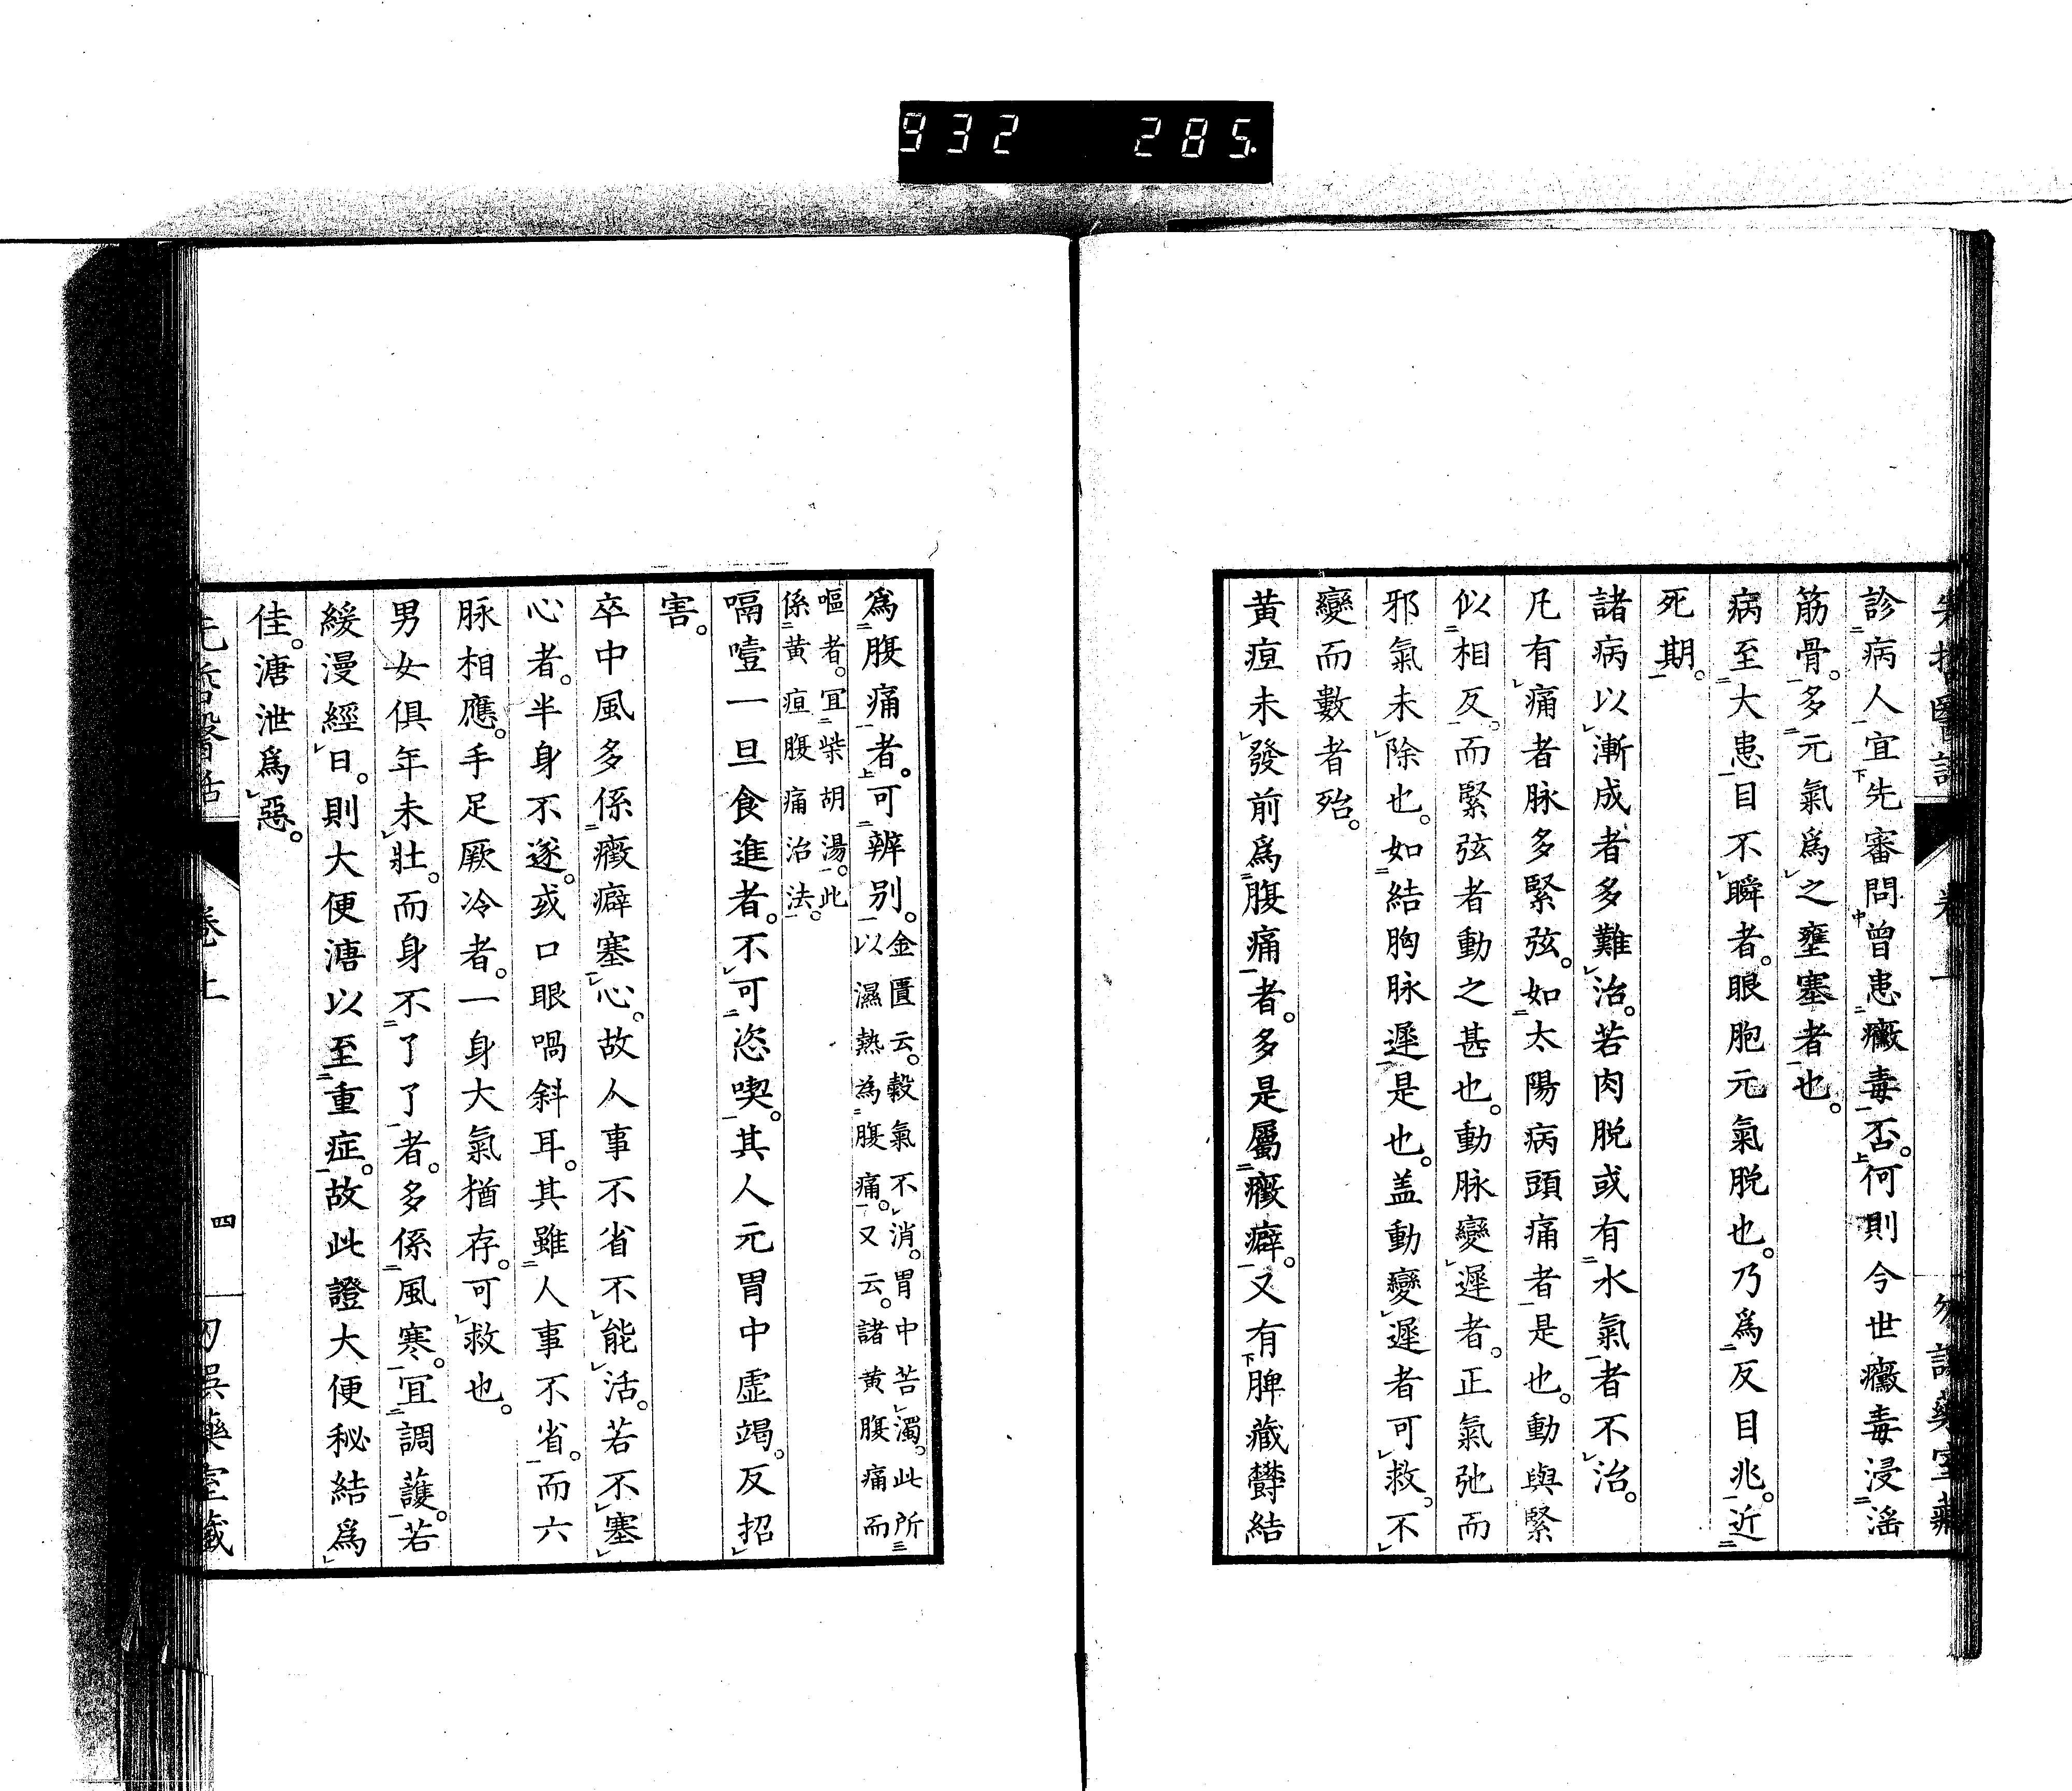 932 285
診病人宜先審問曾患黴毒否。何則今世黴毒浸淫
筋骨。多元氣爲之壅塞者也。
病至大患目不瞬者。眼胞元氣脱也。乃爲反目兆。近
死期。
諸病以漸成者多難治。若肉脱或有水氣者不治。
凡有痛者脉多緊弦。如太陽病頭痛者是也。動與緊
似相反。而緊弦者動之甚也。動脉變遲者。正氣弛而
邪氣未除也。如結胸脉遲是也。盖動變遲者可救。不
變而數者殆。
黄疸未發前爲腹痛者。多是屬癥癖。又有脾藏欝結
爲腹痛者。可辨别。金匱云。穀氣不消。胃中苦濁。此所
以濕熱為腹痛。又云。諸黄腹痛而
嘔者。宜柴胡湯。此
係黄疸腹痛治法。
嗝噎一旦食進者。不可恣喫。其人元胃中虛竭。反招
害。
卒中風多係癥癖塞心。故人事不省不能活。若不塞
心者。半身不遂。或口眼喎斜耳。其雖人事不省。而六
脉相應。手足厥冷者。一身大氣猶存。可救也。
男女俱年未壯。而身不了了者。多係風寒。宜調護。若
緩漫經日。則大便溏以至重症。故此證大便秘結爲
佳。溏泄爲惡。
卷上
四